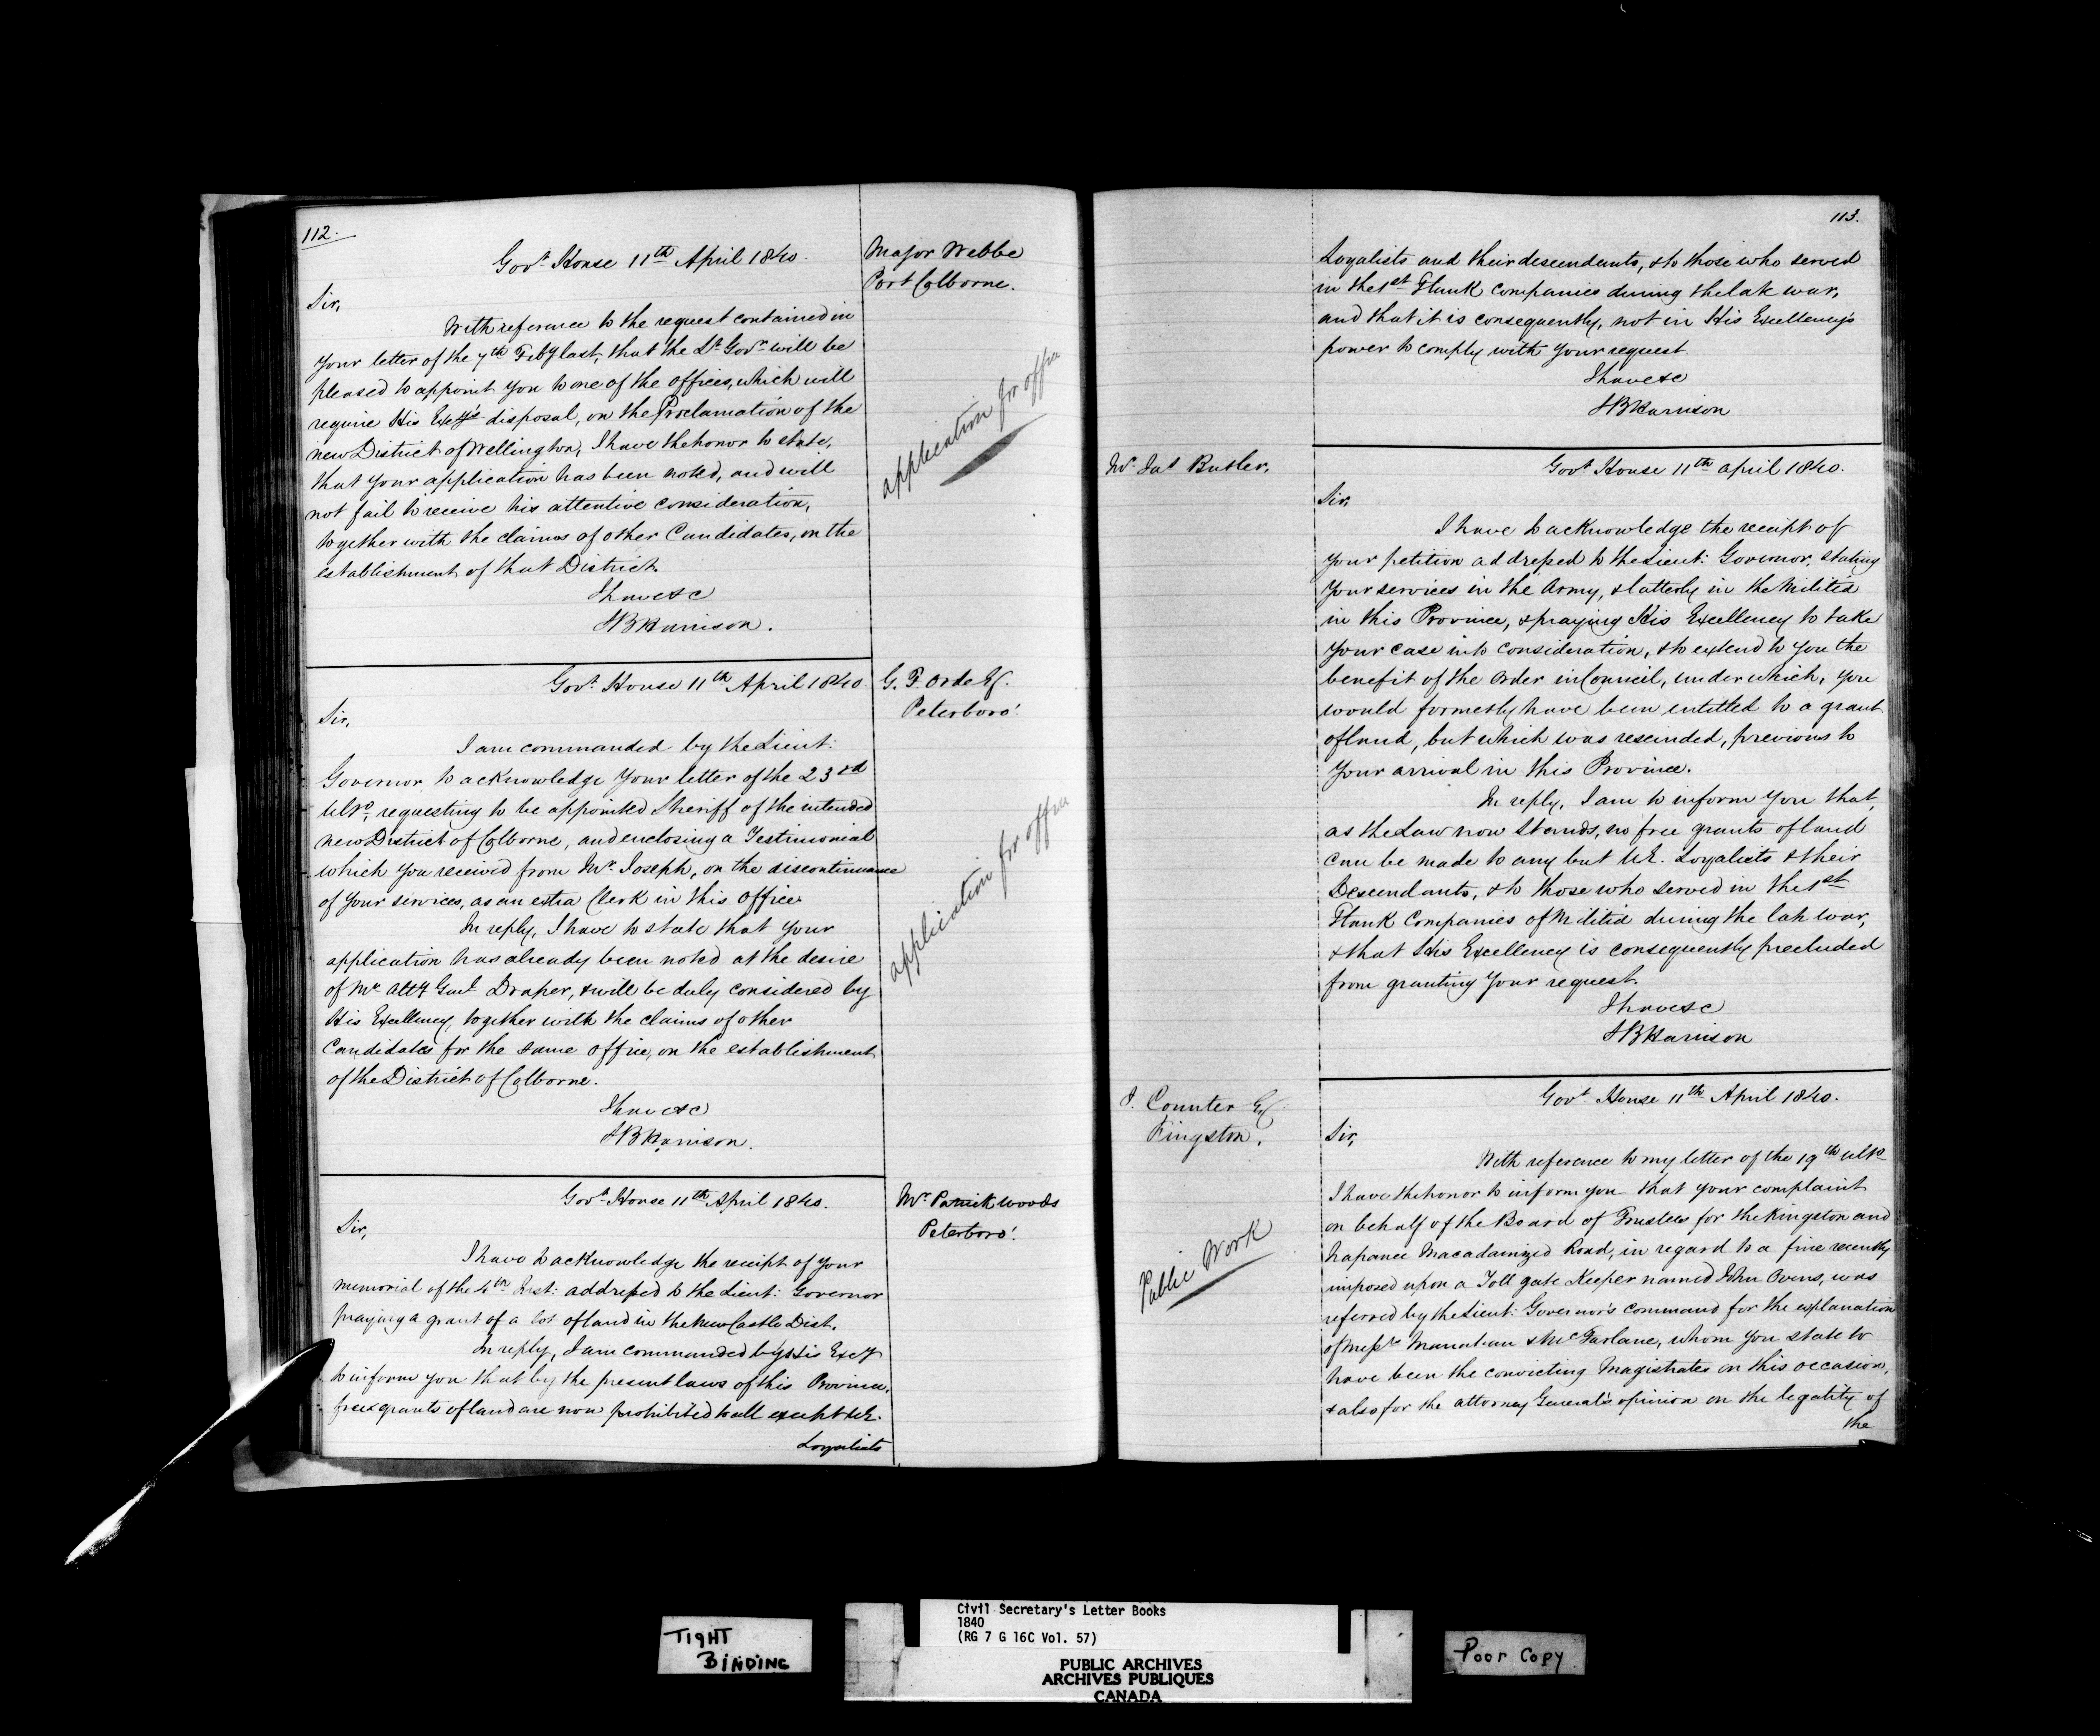 112.
Major Webbe
Port Colborne.
Govt House 11th April 1840.
Sir,
With reference to the request contained in
your letter of the 7th Feby last, that the Lt Govr will be
pleased to appoint you to one of the offices, which will
require His Excy's disposal, on the Proclamation of the
new District of Wellington, I have the honor to state,
that your application has been noted, and will
not fail to receive his attentive consideration,
together with the claims of other Candidates, on the
establishment of that District.
I have &c
SBHarrison.
application for office
G. F. Orde Esq.
Peterboro'.
Govt House 11th April 1840
Sir,
I am commanded by the Lieut:
Governor to acknowledge your letter of the 23rd
Ulto, requesting to be appointed Sheriff of the intended
new District of Colborne, and enclosing a Testimonial
which you received from Mr Joseph, on the discontinuance
of your services, as an extra Clerk in this Office.
In reply, I have to state that your
application has already been noted at the desire
of Mr Atty Genl Draper, & will be duly considered by
His Excellency, together with the claims of other
Candidates for the same office, on the establishment
of the District of Colborne.
I have &c
SBHarrison.
application for office
Mr Patrick Woods
Peterboro'.
Govt House 11th April 1840.
Sir,
I have to acknowledge the receipt of your
memorial of the 4th Inst: addressed to the Lieut: Governor
praying a grant of a lot of land in the New Castle Dist.
In reply, I am commanded by His Excy
to inform you that by the present laws of this Province,
free grants of land are now prohibited to all except U.E.
Loyalists
113.
Loyalists and their descendants, & to those who served
in the 1st Flank Companies during the late war,
and that it is consequently, not in His Excellency's
power to comply with your request.
I have &c
SBHarrison
Mr Jas Butler.
Govt House 11th April 1840.
Sir,
I have to acknowledge the receipt of
your petition addressed to the Lieut: Governor, stating
your services in the Army, & latterly in the Militia
in this Province, & praying His Excellency to take
your case into consideration, & to extend to you the
benefit of the Order in Council, under which, you
would formerly have been entitled to a grant
of land, but which was rescinded, previous to
your arrival in this Province.
In reply, I am to inform you that,
as the Law now stands, no free grants of land
can be made to any but U.E. Loyalists & their
Descendants, & to those who served in the 1st
Flank Companies of Militia during the late war,
& that His Excellency is consequently precluded
from granting your request.
I have &c
SBHarrison
J. Counter Esq
Kingston.
Govt House 11th April 1840.
Sir,
With reference to my letter of the 19th ulto
I have the honor to inform you that your complaint
on behalf of the Board of Trustees for the Kingston and
Napanee Macadamized Road, in regard to a fine recently
imposed upon a Toll gate Keeper named John Ovens, was
referred by the Lieut: Governor's command for the explanation
of Messrs Manahan & McFarlane, whom you state to
have been the convicting Magistrates on this occasion,
& also for the Attorney General's opinion on the legality of
the
Public Work
TIGHT
BINDING
Civil Secretary's Letter Books
1840
(RG 7 G 16C Vol. 57)
PUBLIC ARCHIVES
ARCHIVES PUBLIQUES
CANADA
Poor Copy